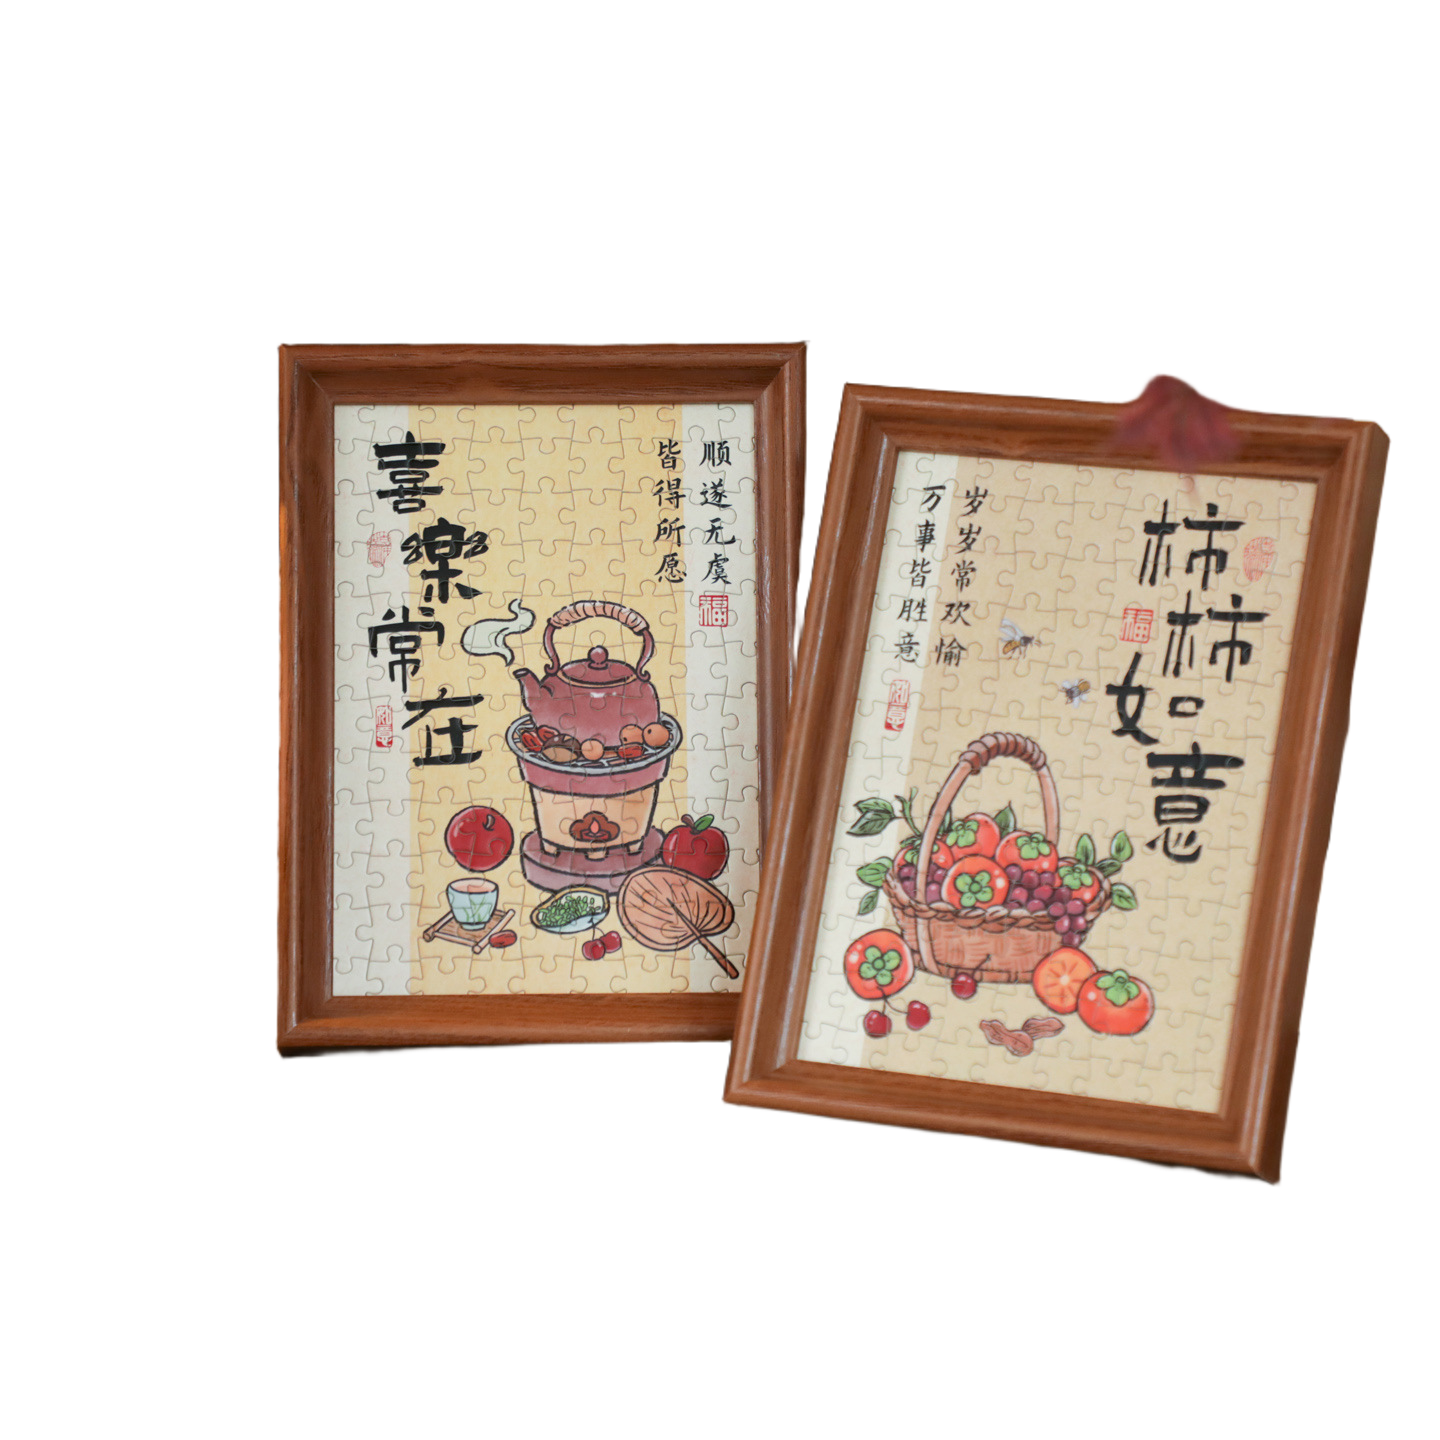 喜樂常在
顺遂无虞
皆得所愿
福
柿柿如意
福
岁岁常欢愉
万事皆胜意